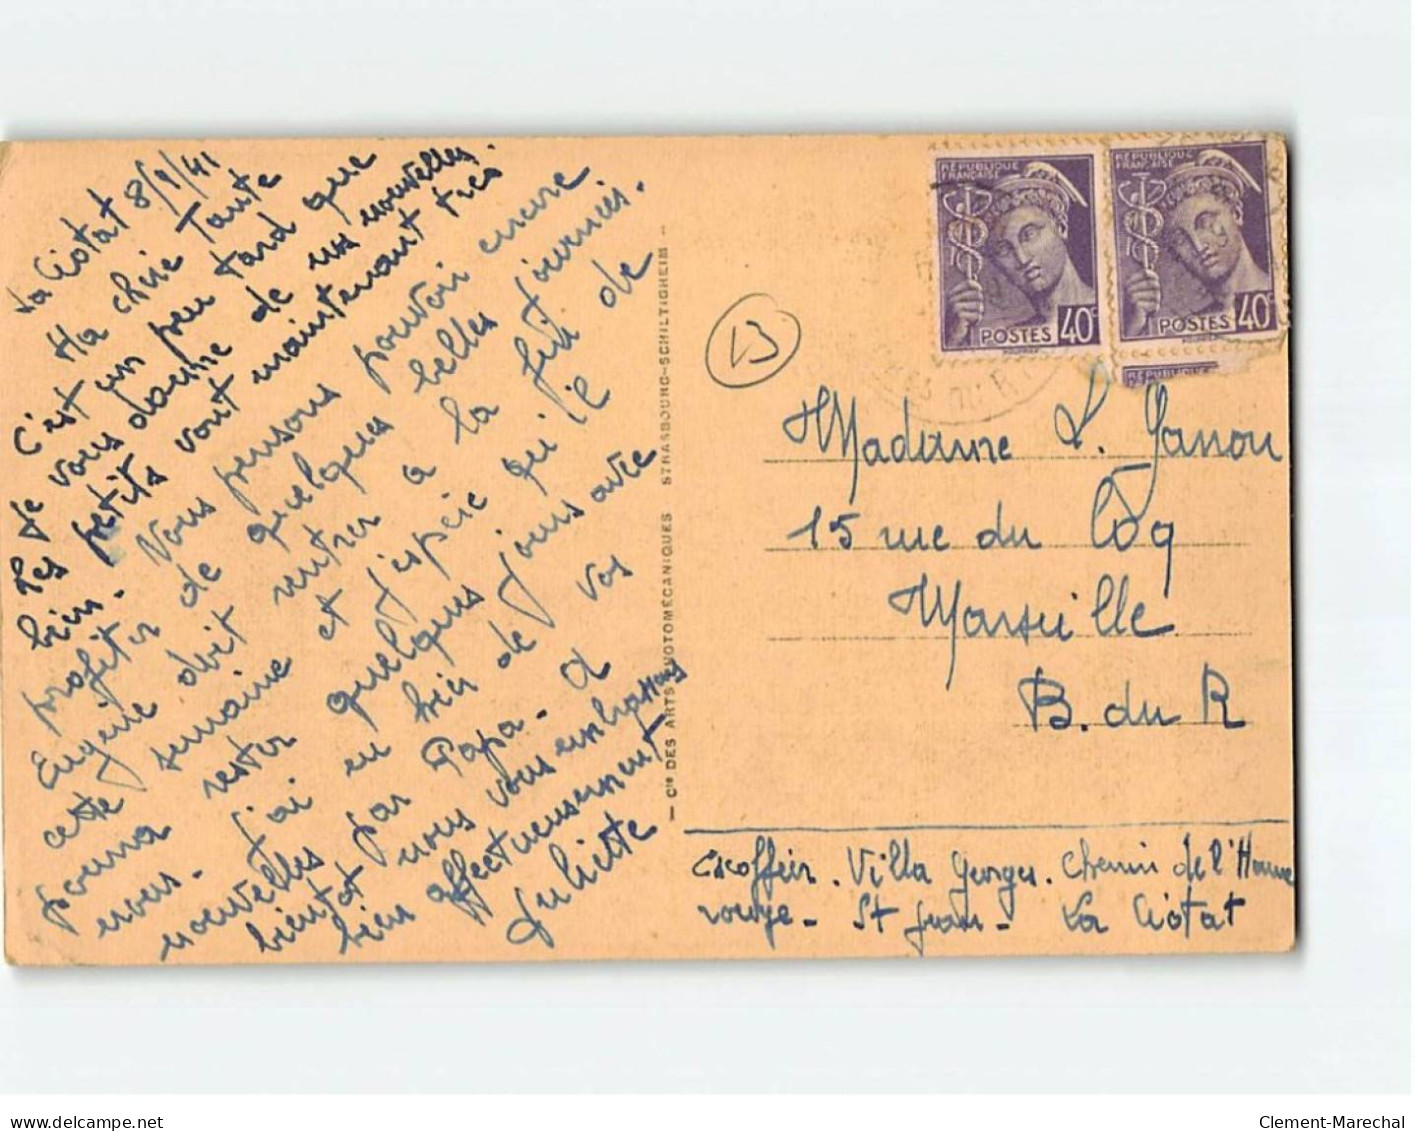 La Ciotat 8/9/41
Ma chère Tante
C'est un peu tard que
je vous donne de nos nouvelles.
Les petits vont maintenant très
bien. Nous pensons pouvoir encore
profiter de quelques belles journées.
Eugène doit rentrer à la fin de
cette semaine et j'espère qu'il
pourra rester quelques jours avec
nous. J'ai eu bien de vos
nouvelles par Papa. A
bientôt nous vous embrassons
bien affectueusement
Juliette
— Cie DES ARTS PHOTOMÉCANIQUES STRASBOURG-SCHILTIGHEIM —
13
RÉPUBLIQUE
FRANÇAISE
POSTES 40c
RÉPUBLIQUE
FRANÇAISE
POSTES 40c
RÉPUBLIQUE
Madame L.
15 rue du Coq
Marseille
B. du R
Escoffier. Villa Georges. Chemin de l'Homme
rouge - St Jean - La Ciotat
delcampe.net
Clement-Marechal